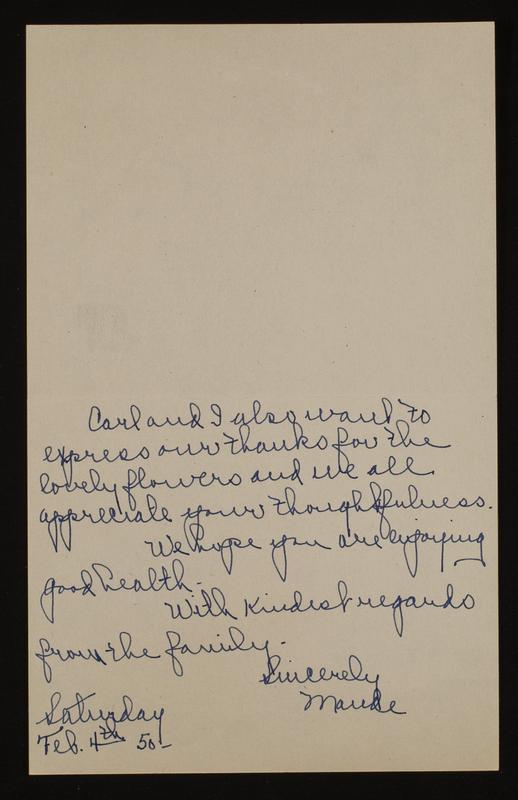 Carl and I also want to
express our thanks for the
lovely flowers and we all
appreciate your thoughtfulness.
We hope you are enjoying
good health.
With Kindest regards
from the family.
Sincerely
Maude
Saturday
Feb. 4th 50-